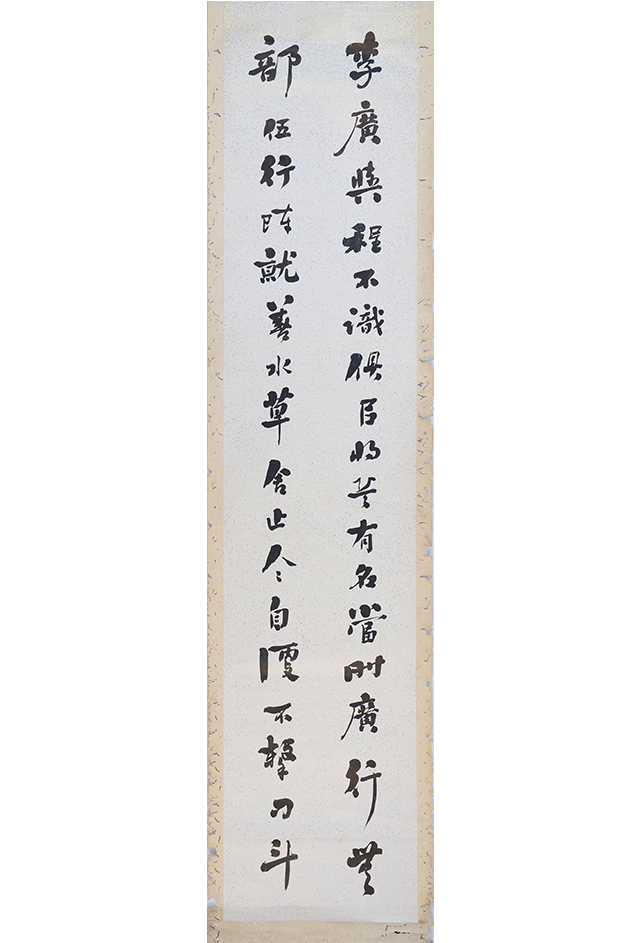 李廣與程不識俱以將軍有名當時廣行無
部伍行陣就善水草舍止人人自便不擊刀斗